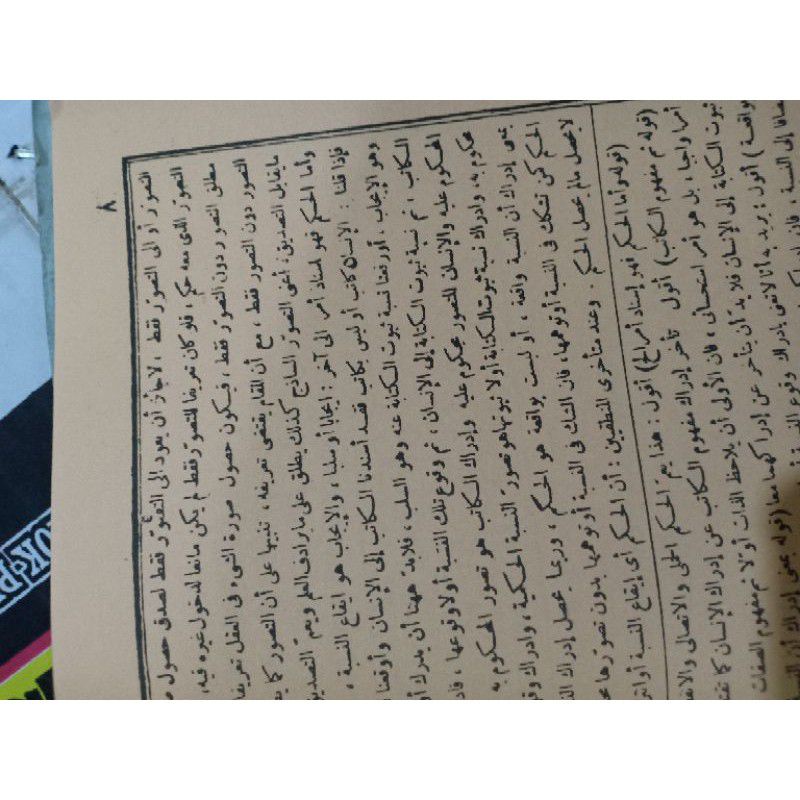 ٨
التصور أو الى التصور فقط ، لاجائز أن يعود الى التصور فقط لصدق حصول
التصور الذى معه حكم ، فلو كان تعريفا للتصور فقط لم يكن مانعا لدخول غيره فيه ،
مطلق التصور دون التصور فقط ، فيكون حصول صورة الشىء فى العقل تعريفا
التصور دون التصور فقط ، مع أن المقام يقتضى تعريفه ، تنبيها على أن التصور كما
مايقابل التصديق ، أعنى التصور الساذج كذلك يطلق على ما يرادف العلم ويعم التصديق
وأما الحكم فهو إسناد أمر الى آخر : إيجابا أو سلبا ، والإيجاب هو ايقاع النسبة ،
فإذا قلنا : الإنسان كاتب أو ليس بكاتب فقد أسندنا الكاتب إلى الإنسان وأوقعنا
وهو الإيجاب ، أو رفعنا نسبة ثبوت الكتابة عنه وهو السلب ، فلابد ههنا أن يدرك
الكاتب ، ثم نسبة ثبوت الكتابة إلى الإنسان ، ثم وقوع تلك النسبة أولا وقوعها ،
المحكوم عليه والإنسان المتصور محكوم عليه وإدراك الكاتب هو تصور المحكوم به
محكوم به ، وإدراك نسبة ثبوت الكتابة أولا ثبوتها هو تصور النسبة الحكمية ، وإدراك
بمعنى إدراك أن النسبة واقعة ، أو ليست بواقعة هو الحكم ، وربما يحصل إدراك
الحكم كمن تشكك فى النسبة أو توهمها ، فان الشك فى النسبة أو توهمها بدون تصورها
لا يحصل مالم يحصل الحكم . وعند متأخرى المنطقيين : أن الحكم أى إيقاع النسبة أو
(قوله وأما الحكم فهو إسناد أمر الخ) أقول : هذا يعم الحكم الحملى والاتصالى
(قوله ثم مفهوم الكاتب) أقول : تأخر إدراك مفهوم الكاتب عن إدراك الإنسان
أمرا واجبا ، بل هو أمر استحسانى ، فان الأولى أن يلاحظ الذات أولا ثم مفهوم الصفات
ثبوت الكتابة إلى الإنسان فلابد أن يتأخر عن إدراكهما معا (قوله بمعنى إدراك أن
بواقعة) أقول : يريد به أنا لانعنى بإدراك وقوع